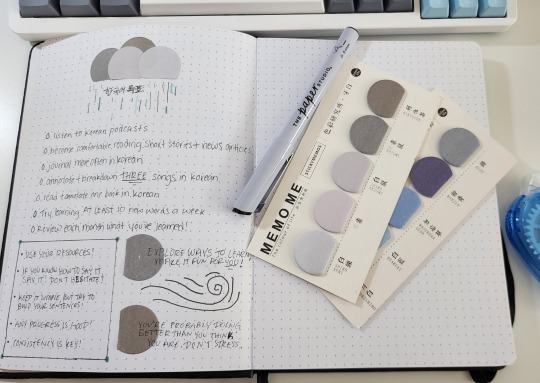 한국어 목표
listen to korean podcasts
become comfortable reading short stories + news articles
journal more often in korean
annotate + breakdown THREE songs in korean
read + annotate one book in korean
Try learning AT LEAST 10 new words a week
Review each month what you've learned!
• USE YOUR RESOURCES!
• IF YOU KNOW HOW TO SAY IT, SAY IT! DON'T HESITATE!
• KEEP IT SIMPLE BUT TRY TO BUILD YOUR SENTENCES!
• ANY PROGRESS IS GOOD!
• CONSISTENCY IS KEY!
EXPLORE WAYS TO LEARN
MAKE IT FUN FOR YOU!
YOU'RE PROBABLY DOING
BETTER THAN YOU THINK
YOU ARE. DON'T STRESS.
THE paper STUDIO
MEMO ME
STICKY MEMOS